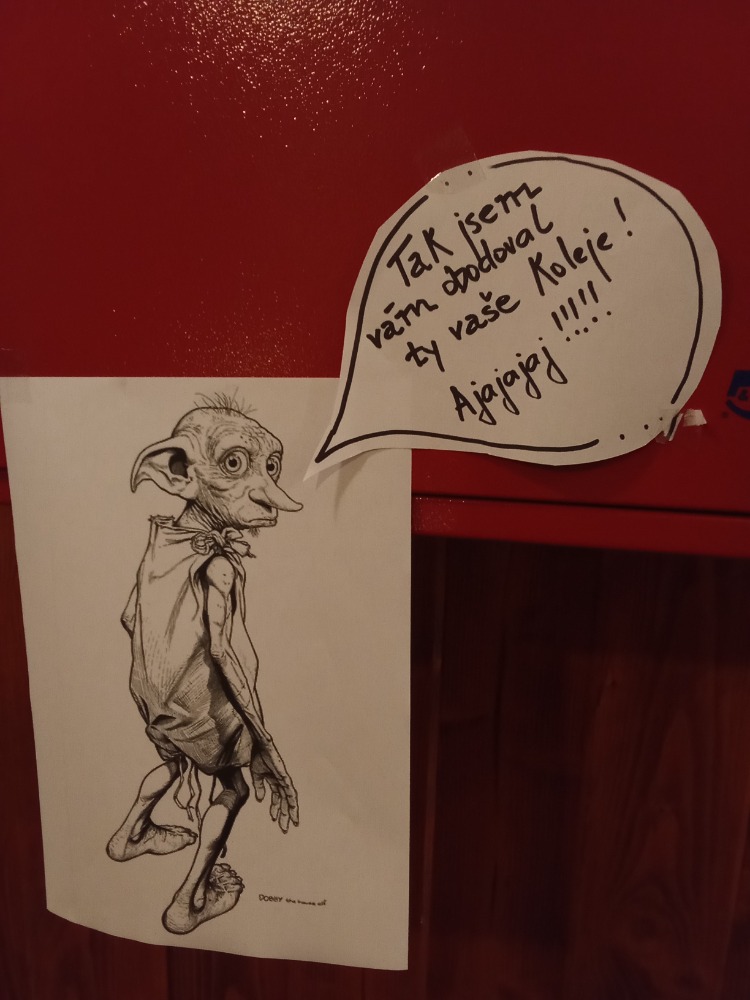 Tak jsem
vám obodoval
ty vaše Koleje!
Ajajajaj!!!!!
DOBBY the house elf